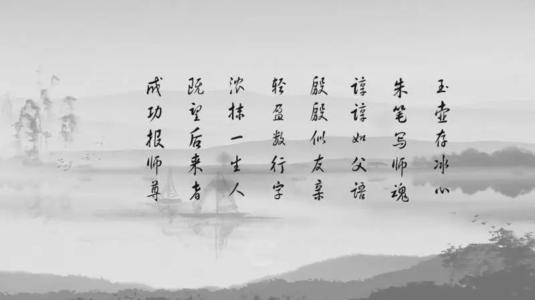 玉壶存冰心
朱笔写师魂
谆谆如父语
殷殷似友亲
轻盈数行字
浓抹一生人
既望后来者
成功报师尊